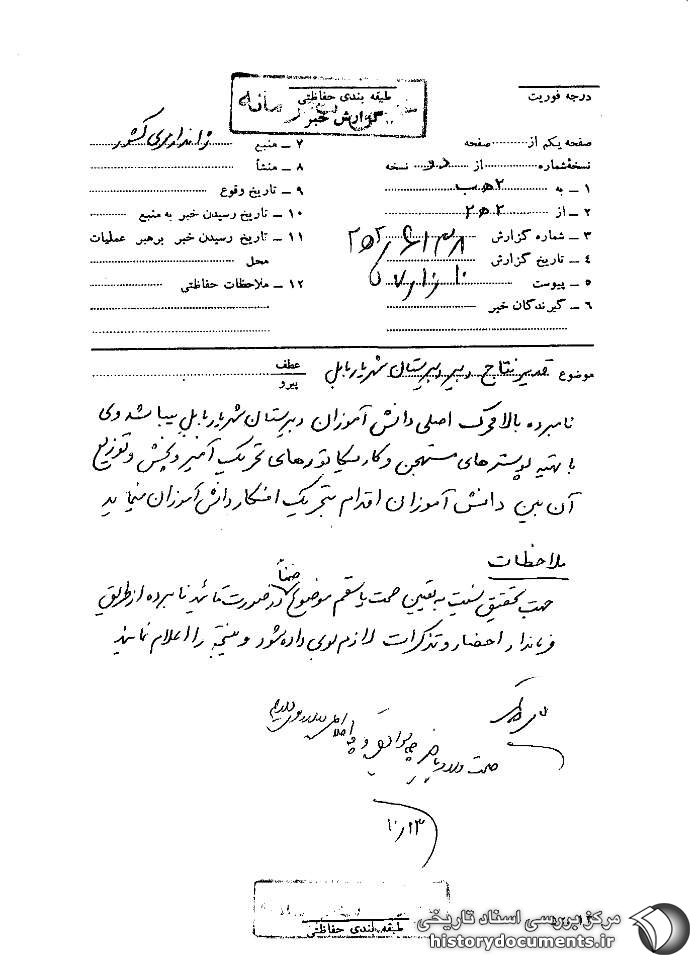 درجه فوریت
طبقه بندی حفاظتی
گزارش خبر
صفحه یکم از صفحه
نسخهٔ شماره از دو نسخه
۱ ـ به ۲ هـ ب
۲ ـ از ۲ هـ ۲
۳ ـ شماره گزارش
۴ ـ تاریخ گزارش
۵ ـ پیوست
۶ ـ گیرندگان خبر
۷ ـ منبع ژاندارمری کشور
۸ ـ منشأ
۹ ـ تاریخ وقوع
۱۰ ـ تاریخ رسیدن خبر به منبع
۱۱ ـ تاریخ رسیدن خبر برهبر عملیات
محل
۱۲ ـ ملاحظات حفاظتی
موضوع قدیر نتاج دبیر دبیرستان شهریار بابل
عطف
پیرو
نامبرده بالا محرک اصلی دانش آموزان دبیرستان شهریار بابل میباشد وی
با تهیه پوسترهای مستهجن و کاریکاتورهای تحریک آمیز و پخش و توزیع
آن بین دانش آموزان اقدام بتحریک افکار دانش آموزان مینماید
ملاحظات
جهت تحقیق نسبت به تعیین صحت یا سقم موضوع ضمناً در صورت تائید نامبرده از طریق
فرماندار احضار و تذکرات لازم بوی داده شود و نتیجه را اعلام نمایند
۱۰/۲۳
طبقه بندی حفاظتی
مرکز بررسی اسناد تاریخی
historydocuments.ir